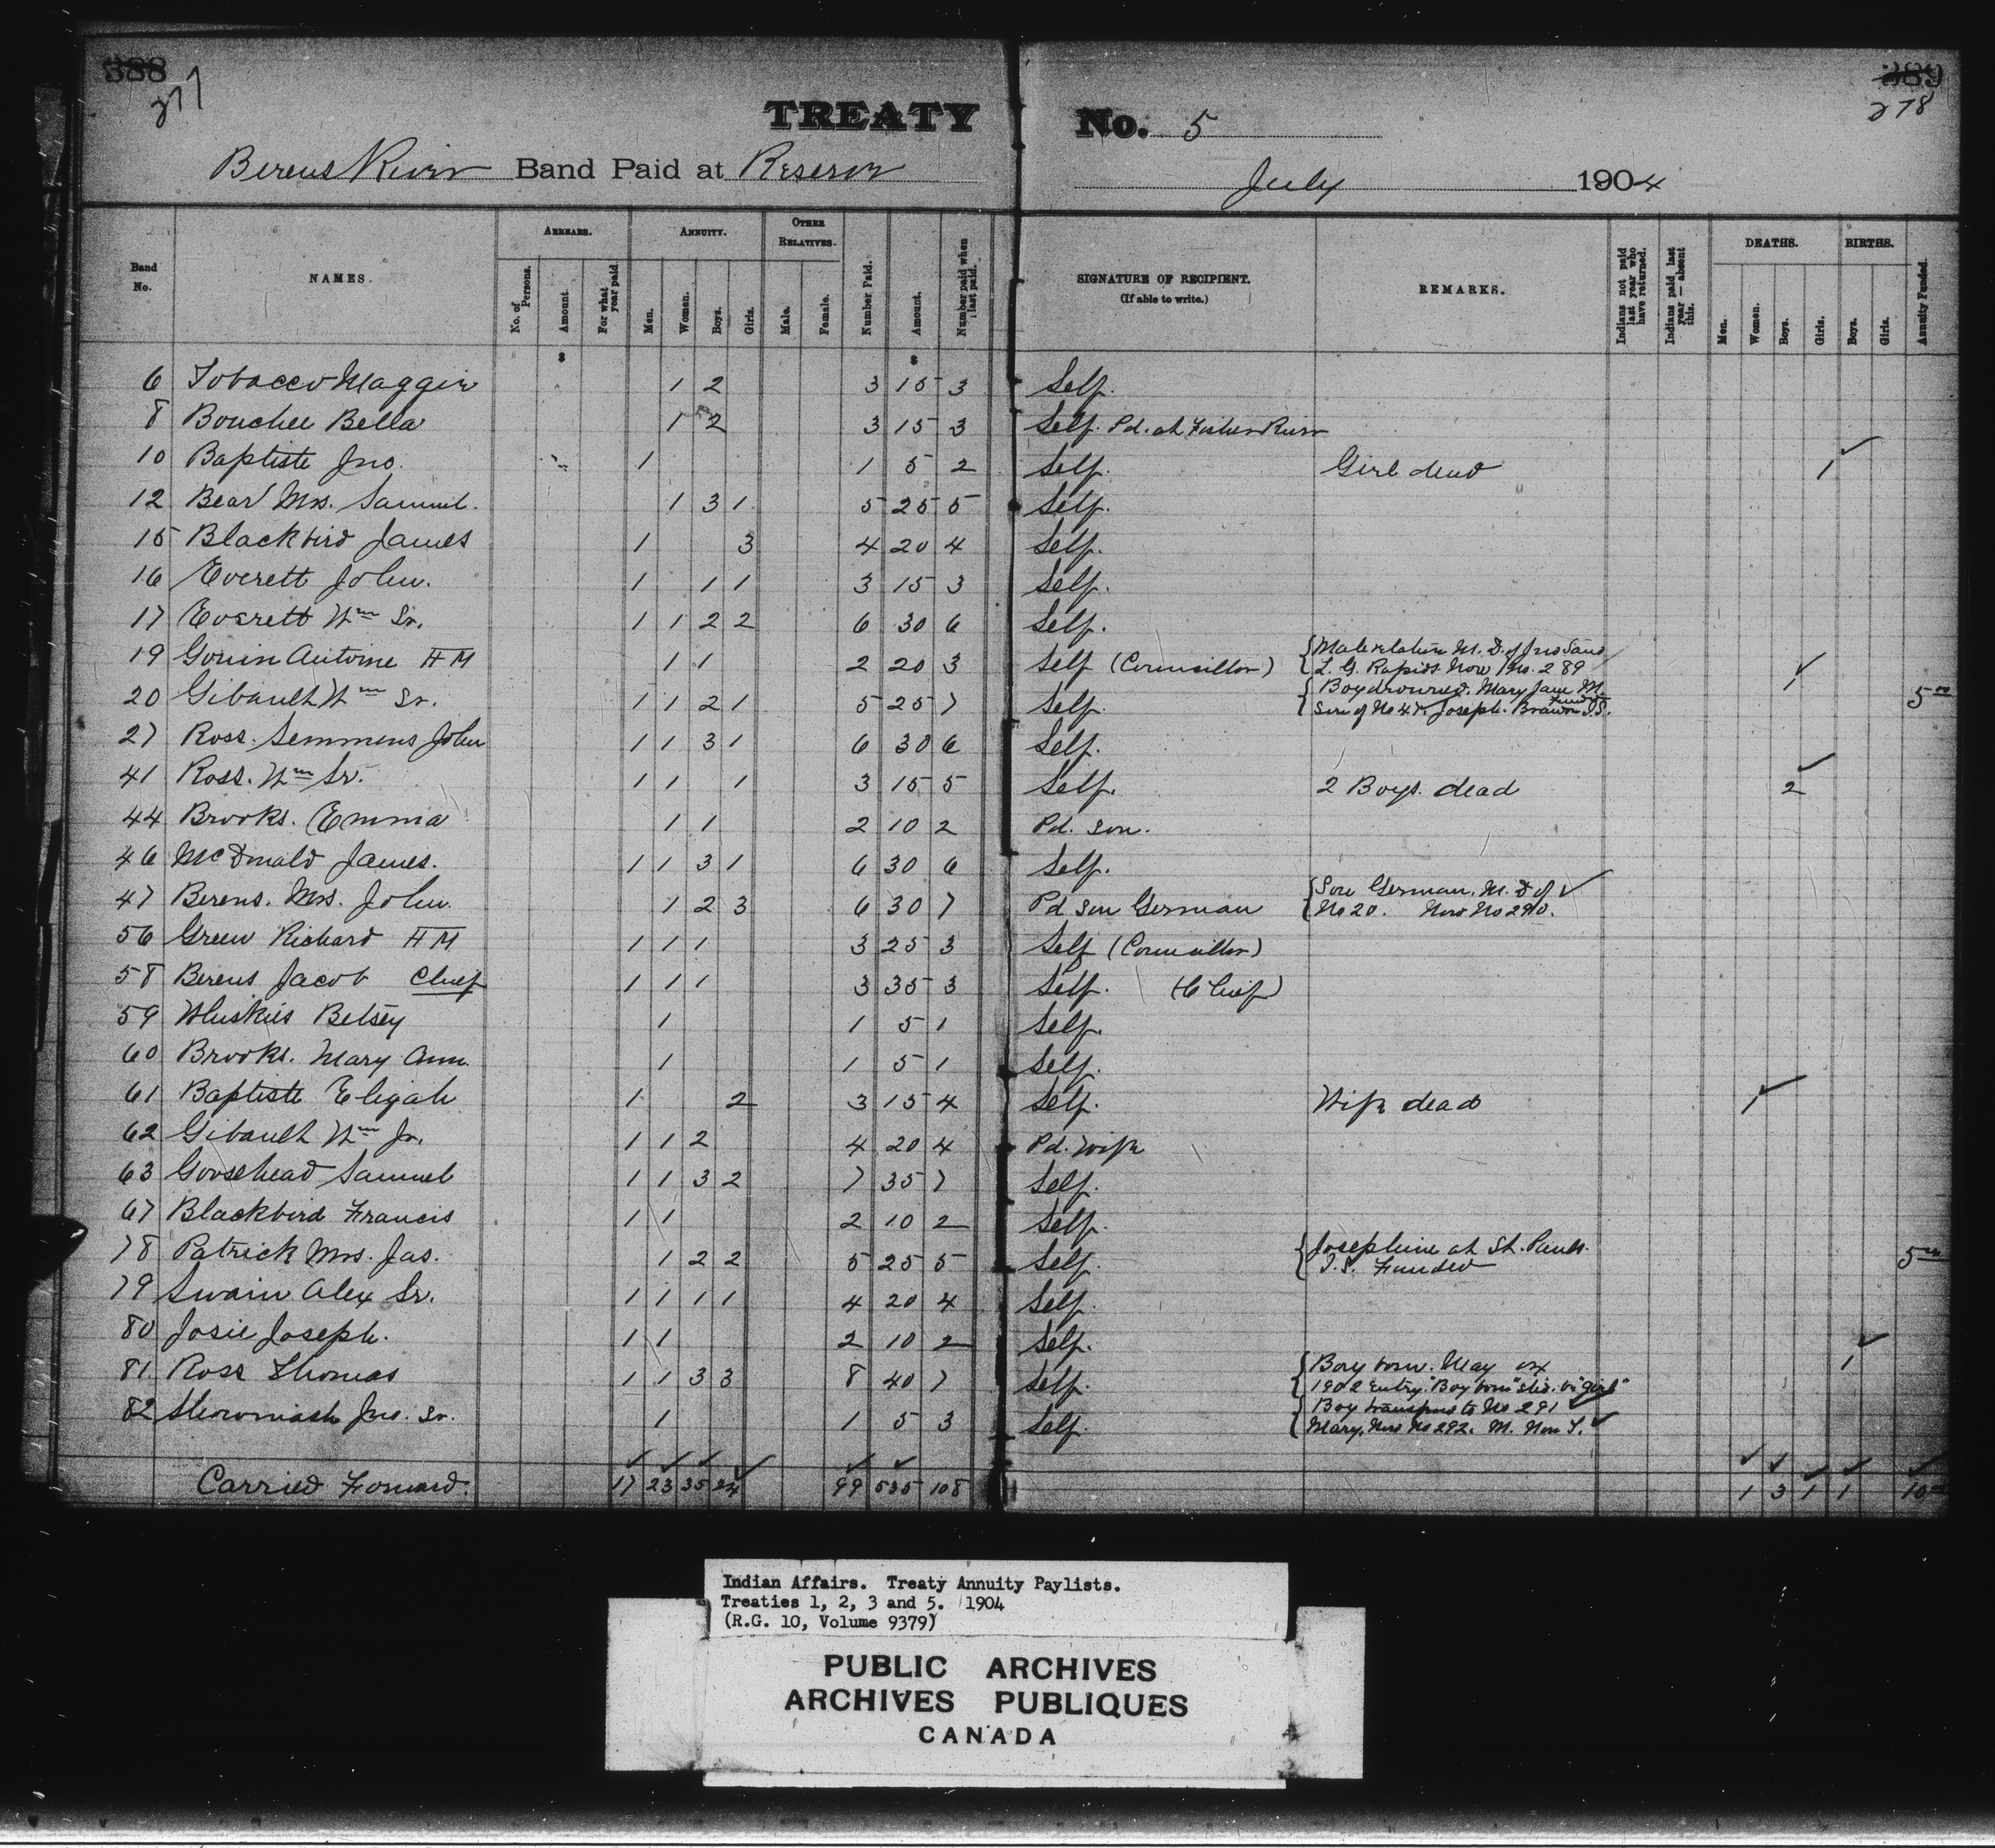 388 389
277 278
TREATY No. 5
Berens River Band Paid at Reserve July 1904
Band No. NAMES. ARREARS. No. of Persons. Amount. For what year paid ANNUITY. Men. Women. Boys. Girls. OTHER RELATIVES. Male. Female. Number Paid. Amount. Number paid when last paid. SIGNATURE OF RECIPIENT. (If able to write.) REMARKS. Indians not paid last year who have returned. Indians paid last year — absent this. DEATHS. Men. Women. Boys. Girls. BIRTHS. Boys. Girls. Annuity Funded.
$ $
6 Tobacco Maggie 1 2 3 15 3 Self.
8 Bouchee Bella 1 2 3 15 3 Self. Pd. at Fisher River
10 Baptiste Jno. 1 1 5 2 Self. Girl dead 1
12 Bear Mrs. Samuel. 1 3 1 5 25 5 Self.
15 Blackbird James 1 3 4 20 4 Self.
16 Everett John. 1 1 1 3 15 3 Self.
17 Everett Wm Sr. 1 1 2 2 6 30 6 Self.
19 Gouin Antoine HM 1 1 2 20 3 Self (Councillor) Male relation M. D. of Jno Sand
L. G. Rapids Now No. 289
20 Gibault Wm Sr. 1 1 2 1 5 25 7 Self. Boy drowned. Mary Jane M. 1 5 00
Son of No 47. Joseph. Brandon I.S. Fund
27 Ross. Semmens John 1 1 3 1 6 30 6 Self.
41 Ross. Wm Sr. 1 1 1 3 15 5 Self. 2 Boys. dead 2
44 Brooks. Emma 1 1 2 10 2 Pd. son.
46 McDonald James. 1 1 3 1 6 30 6 Self.
47 Berens. Mrs. John. 1 2 3 6 30 7 Pd son German Son German. M. D of
No 20. Now No 290.
56 Green Richard HM 1 1 1 3 25 3 Self (Councillor)
58 Berens Jacob Chief 1 1 1 3 35 3 Self. (Chief)
59 Whiskies Betsey 1 1 5 1 Self.
60 Brooks. Mary Ann. 1 1 5 1 Self.
61 Baptiste Eligah 1 2 3 15 4 Self. Wife dead 1
62 Gibault Wm Jr. 1 1 2 4 20 4 Pd. Wife
63 Goosehead Samuel 1 1 3 2 7 35 7 Self.
67 Blackbird Francis 1 1 2 10 2 Self.
78 Patrick Mrs. Jas. 1 2 2 5 25 5 Self. Josephine at St. Pauls. 5 00
I.S. Funded
79 Swain Alex Sr. 1 1 1 1 4 20 4 Self.
80 Josie Joseph. 1 1 2 10 2 Self.
81 Ross Thomas 1 1 3 3 8 40 7 Self. Boy born. May 1
1902 Entry "Boy born" "girl"
82 Jno. Sr. 1 1 5 3 Self. Boy transfers to No 291
Mary. Now No 292. M. Non T.
Carried Forward. 17 23 35 24 99 535 108 1 3 1 1 10 00
Indian Affairs. Treaty Annuity Paylists.
Treaties 1, 2, 3 and 5. 1904
(R.G. 10, Volume 9379)
PUBLIC ARCHIVES
ARCHIVES PUBLIQUES
CANADA